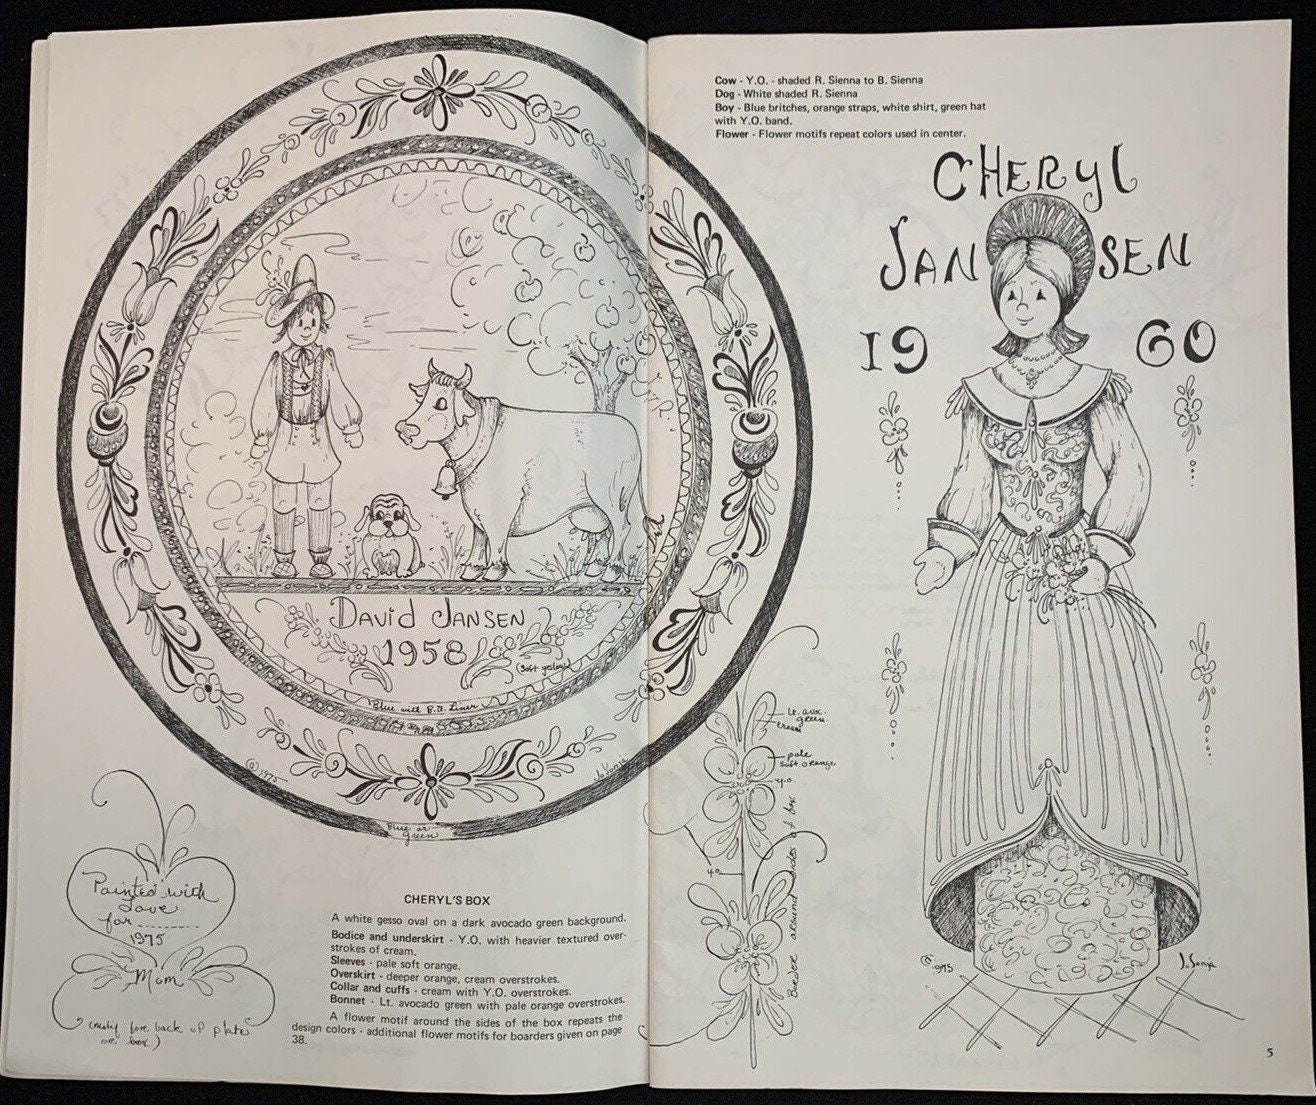 DAVID JANSEN
1958
(soft yellow)
Blue with B.U. Liner
©1975
Blue or
Green
Painted with
Love
for
1975
Mom
back of plate
or box)
CHERYL'S BOX
A white gesso oval on a dark avocado green background.
Bodice and underskirt - Y.O. with heavier textured over-
strokes of cream.
Sleeves - pale soft orange.
Overskirt - deeper orange, cream overstrokes.
Collar and cuffs - cream with Y.O. overstrokes.
Bonnet - Lt. avocado green with pale orange overstrokes.
A flower motif around the sides of the box repeats the
design colors - additional flower motifs for boarders given on page
38.
Cow - Y.O. - shaded R. Sienna to B. Sienna
Dog - White shaded R. Sienna
Boy - Blue britches, orange straps, white shirt, green hat
with Y.O. band.
Flower - Flower motifs repeat colors used in center.
CHERYL
JANSEN
1960
Lt. avo.
green
cream
pale
soft orange
y.o.
y.o.
Border around sides of box
©1975
Jo Sonja
5